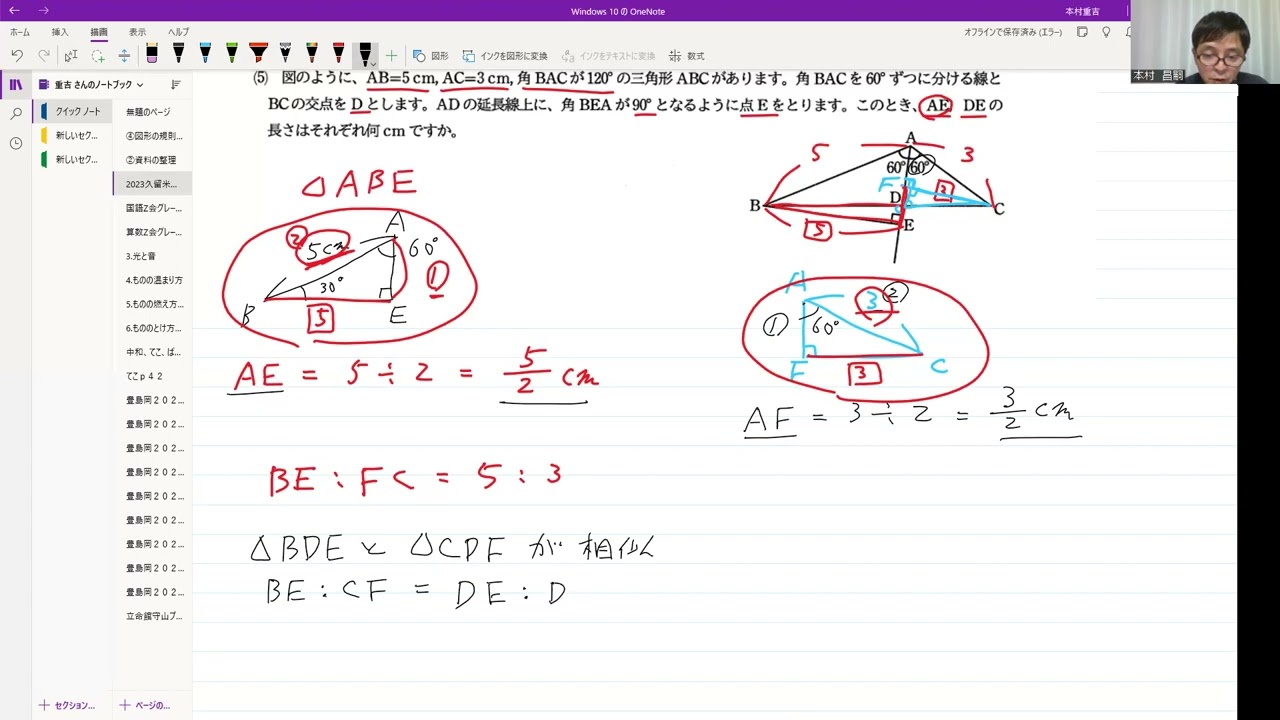 Windows 10 の OneNote
本村重吉
ホーム 挿入 描画 表示 ヘルプ
オフラインで保存済み (エラー)
図形 インクを図形に変換 インクをテキストに変換 数式
本村 昌嗣
重吉 さんのノートブック
クイック ノート
新しいセク...
新しいセク...
無題のページ
④図形の規則...
②資料の整理
2023久留米...
国語Z会グレー...
算数Z会グレー...
3.光と音
4.ものの温まり方
5.ものの燃え方...
6.もののとけ方...
中和、てこ、ば...
てこp４２
豊島岡２０２...
豊島岡２０２...
豊島岡２０２...
豊島岡２０２...
豊島岡２０２...
豊島岡２０２...
豊島岡２０２...
豊島岡２０２...
豊島岡２０２...
立命館守山プ...
セクション...
ページの...
(5) 図のように、AB=5 cm, AC=3 cm, 角 BAC が 120° の三角形 ABC があります。角 BAC を 60° ずつに分ける線と
BC の交点を D とします。AD の延長線上に、角 BEA が 90° となるように点 E をとります。このとき、AE, DE の
長さはそれぞれ何 cm ですか。
A
5 3
60° 60°
F
D 3
B C
5 E
△ABE
A
② 5cm 60°
30° ①
B E
5
AE = 5÷2 = 5/2 cm
A
3 ②
① 60°
F C
3
AF = 3÷2 = 3/2 cm
BE : FC = 5 : 3
△BDE と △CDF が 相似
BE : CF = DE : D